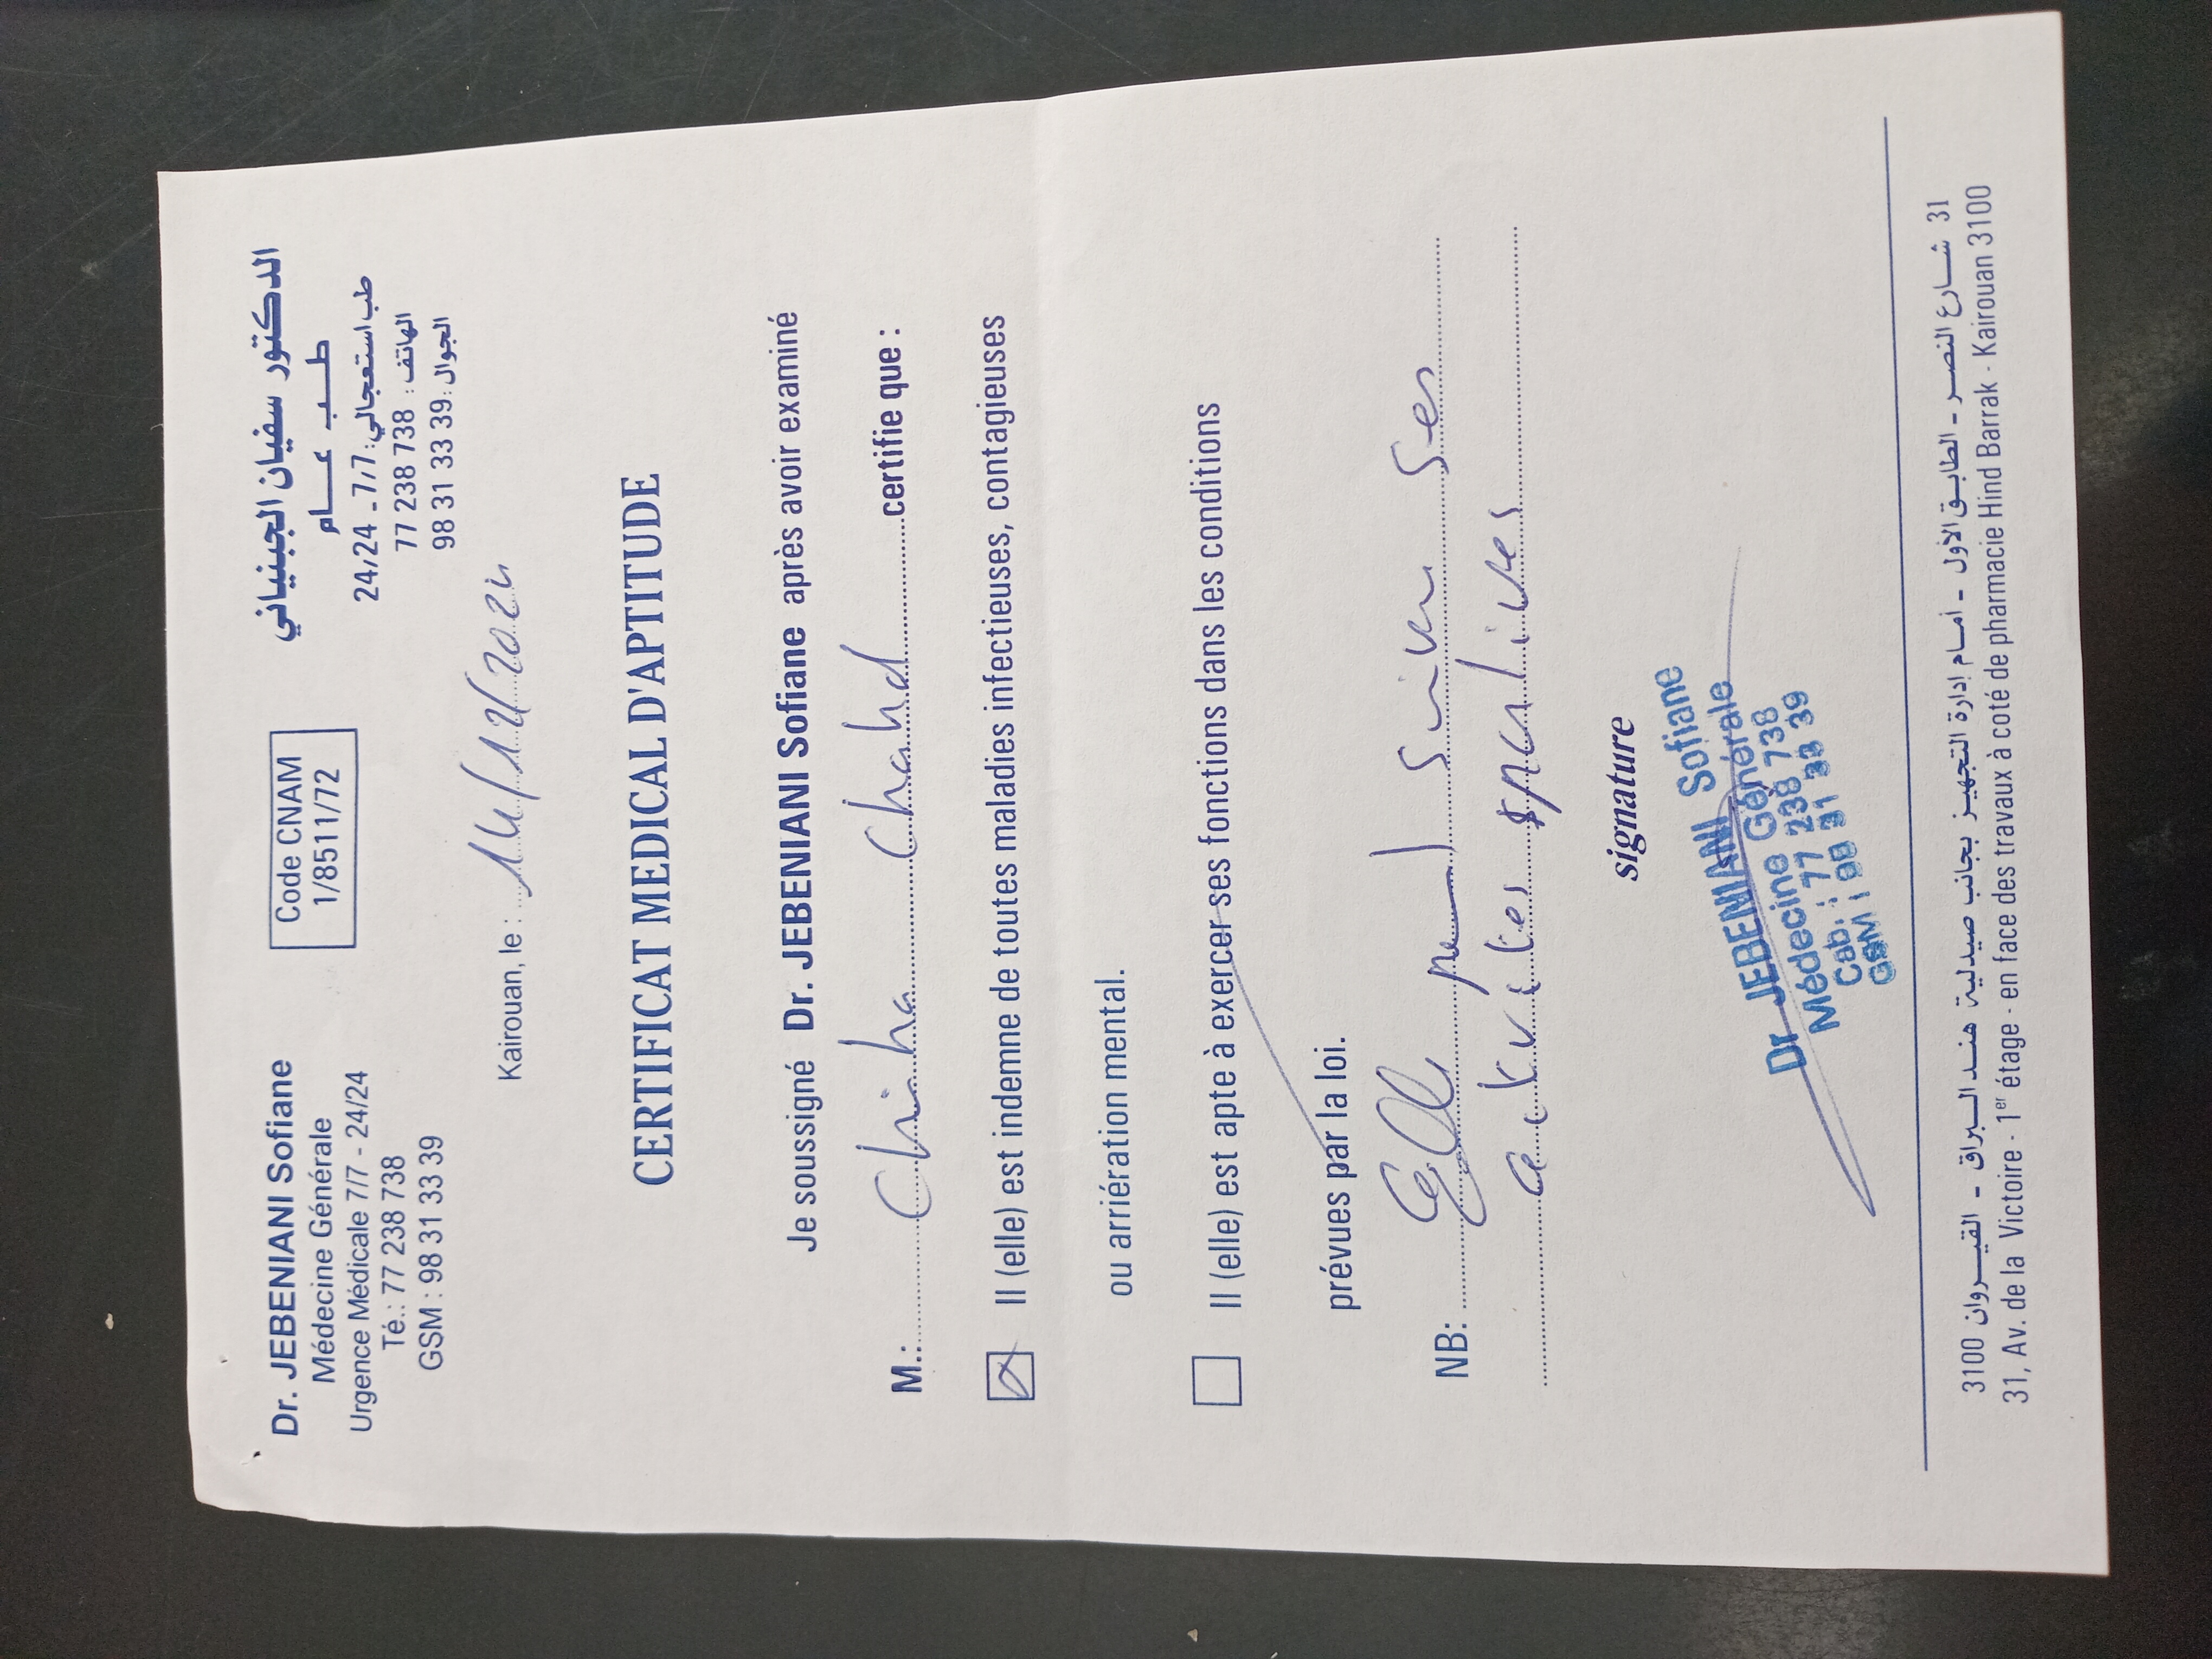 Dr. JEBENIANI Sofiane
Médecine Générale
Urgence Médicale 7/7 - 24/24
Té.: 77 238 738
GSM : 98 31 33 39
Code CNAM
1/8511/72
الدكتور سفيان الجبنياني
طـــب عـــام
طب استعجالي: 7/7 - 24/24
الهاتف : 77 238 738
الجوال: 98 31 33 39
Kairouan, le : 14/12/2024
CERTIFICAT MEDICAL D'APTITUDE
Je soussigné Dr. JEBENIANI Sofiane après avoir examiné
M.: Chiha Chahd certifie que :
Il (elle) est indemne de toutes maladies infectieuses, contagieuses
ou arriération mental.
Il (elle) est apte à exercer ses fonctions dans les conditions
prévues par la loi.
NB: Elle peut suivre ses
activites sportives
signature
Dr JEBENIANI Sofiane
Médecine Générale
Cab : 77 238 738
GSM : 98 31 33 39
31 شـــارع النصـــر - الطابــق الأول - أمــام إدارة التجهيــز بجانب صيدلية هنــد البــراق - القيــروان 3100
31, Av. de la Victoire - 1er étage - en face des travaux à coté de pharmacie Hind Barrak - Kairouan 3100